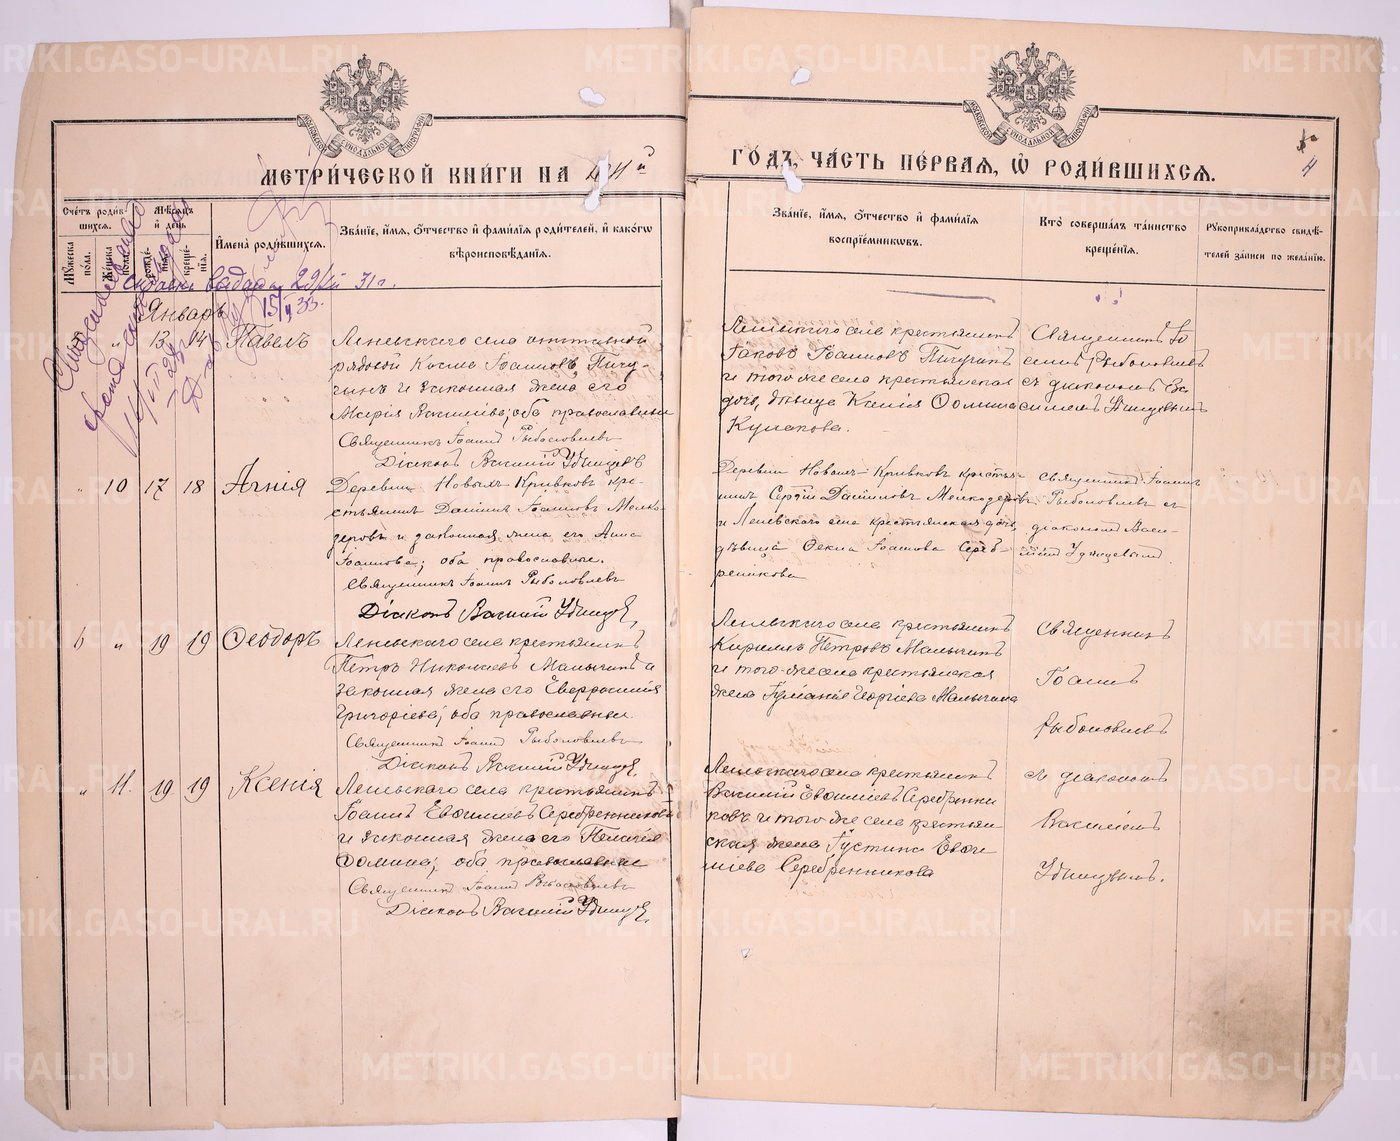 МЕТРИ́ЧЕСКОЙ КНИ́ГИ НА 1911й ГО́ДЪ, ЧА́СТЬ ПЕ́РВАЯ, Ѡ РОДИ́ВШИХСЯ.
4
Сче́тъ роди́в-
шихся.
Му́жеска по́ла.
Же́нска по́ла.
Мѣ́сяцъ и де́нь
рожде́нія.
креще́нія.
И҆мена̀ роди́вшихся.
Зва́ніе, и҆́мя, ѻ҆́тчество и҆ фами́лія роди́телей, и҆ како́гѡ
вѣроисповѣ́данія.
Зва́ніе, и҆́мя, ѻ҆́тчество и҆ фами́лія
воспрїе́мниковъ.
Кто̀ соверша́лъ та́инство
креще́нія.
Рукоприкла́дство свидѣ́-
телей за́писи по жела́нію.
выдана 29/ 31 г.
Январь
„ 13 14 Павелъ
Леневскаго села
рядовой Косма Іоанновъ Пичу-
гинъ и законная жена его
Марія Васильева; оба православные
Священникъ Іоаннъ Рыболовлевъ
Діаконъ Василій Удинцевъ
Леневскаго села крестьянинъ
Іаковъ Іоанновъ Пичугинъ
и того же села крестьянская
дочь, дѣвица
Кулакова.
Священникъ Іо-
аннъ Рыболовлевъ
съ діакономъ Ва-
силіемъ Удинцевымъ
„ 10 17 18 Агнія
Деревни Новыхъ Кривковъ кре-
стьянинъ Даніилъ Іоанновъ Мелко-
зеровъ и законная жена его Анна
Іоаннова; оба православные.
Священникъ Іоаннъ Рыболовлевъ
Діаконъ Василій Удинцевъ
Деревни Новыхъ Кривковъ крестья-
нинъ Сергій Данииловъ Мелкозеровъ
и Леневскаго села крестьянская дочь,
дѣвица Фекла Іоаннова Сереб-
реникова
Священникъ Іоаннъ
Рыболовлевъ съ
діакономъ Васи-
ліемъ Удинцевымъ
6 „ 19 19 Ѳеодоръ
Леневскаго села крестьянинъ
Петръ Николаевъ Малыгинъ и
законная жена его Евфросинія
Григоріева; оба православные.
Священникъ Іоаннъ Рыболовлевъ
Діаконъ Василій Удинцевъ
Леневскаго села крестьянинъ
Кириллъ Петровъ Малыгинъ
и того-же села крестьянская
жена Іуліанія Георгіева Малыгина
Священникъ
Іоаннъ
Рыболовлевъ
„ 11. 19 19 Ксенія
Леневскаго села крестьянинъ
Іоаннъ Евфиміевъ Серебренниковъ
и законная жена его Пелагія
Фомина; оба православные
Священникъ Іоаннъ Рыболовлевъ
Діаконъ Василій Удинцевъ
Леневскаго села крестьянинъ
Василій Евфиміевъ Серебренни-
ковъ и того же села крестьян-
ская жена Іустина Евфи-
міева Серебренникова
съ діакономъ
Василіемъ
Удинцевымъ.
METRIKI.GASO-URAL.RU